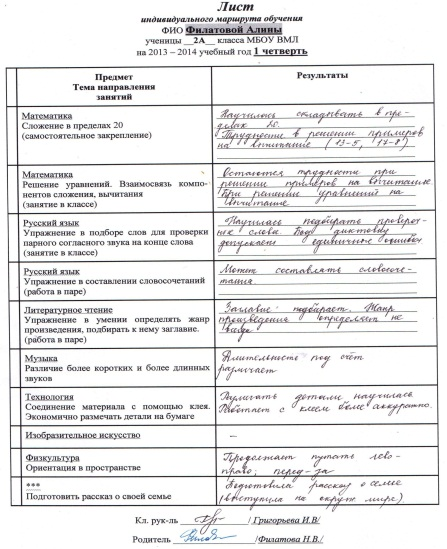 Лист
индивидуального маршрута обучения
ФИО Филатовой Алины
ученицы __2А__ класса МБОУ ВМЛ
на 2013 – 2014 учебный год 1 четверть
Предмет
Тема направления
занятий
Результаты
Математика
Сложение в пределах 20
(самостоятельное закрепление)
Научилась складывать в пре-
делах 20.
Трудности в решении примеров
на вычитание (13-5, 17-8)
Математика
Решение уравнений. Взаимосвязь компо-
нентов сложения, вычитания
(занятие в классе)
Остаются трудности при
решении примеров на вычитание.
При решении уравнений на
вычитание
Русский язык
Упражнение в подборе слов для проверки
парного согласного звука на конце слова
(занятие в классе)
Научилась подбирать провероч-
ные слова. Под диктовку
допускает единичные ошибки
Русский язык
Упражнение в составлении словосочетаний
(работа в паре)
Может составлять словосоче-
тания
Литературное чтение
Упражнение в умении определять жанр
произведения, подбирать к нему заглавие.
(работа в паре)
Заглавие подбирает. Жанр
произведения определяет не
всегда
Музыка
Различие более коротких и более длинных
звуков
Длительность под счёт
различает
Технология
Соединение материала с помощью клея.
Экономично размечать детали на бумаге
Размечать детали научилась
Работает с клеем более аккуратно.
Изобразительное искусство
–
Физкультура
Ориентация в пространстве
Продолжает путать лево-
право; перед-за
***
Подготовить рассказ о своей семье
Подготовила рассказ о семье
(выступила на окруж. мире)
Кл. рук-ль / Григорьева И.В/
Родитель /Филатова Н.В./